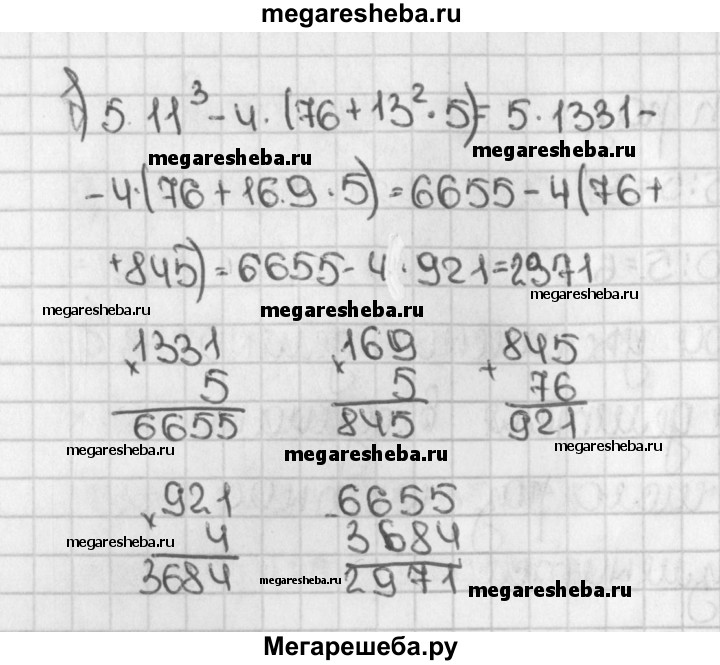 megaresheba.ru
б) 5·11³-4·(76+13²·5)= 5·1331-
megaresheba.ru megaresheba.ru
-4·(76+16.9·5)=6655-4(76+
+845)=6655-4·921=2971
megaresheba.ru megaresheba.ru megaresheba.ru
×1331 ×169 +845
5 5 76
6655 845 921
megaresheba.ru megaresheba.ru megaresheba.ru
×921 -6655
megaresheba.ru 4 3684
3684 megaresheba.ru 2971 megaresheba.ru
Мегарешеба.ру